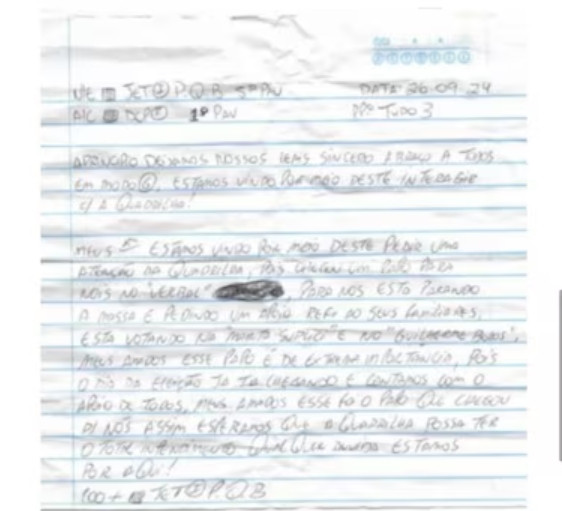 DATA: 26.09.24
1º PAV Nº TUDO 3
DEIXAMOS NOSSOS LEAIS SINCERO ABRAÇO A TODOS
EM MODO G, ESTAMOS VINDO POR MEIO DESTE INTERAGIR
C/ A QUADRILHA!
MEUS ESTAMOS VINDO POR MEIO DESTE PEDIR UMA
ATENÇÃO DA QUADRILHA, POIS CHEGOU UM PAPO PARA
NÓIS NO "VERBAL" , PARA NOS ESTA PARANDO
A NOSSA E PEDINDO UM APOIO REF. AO SEUS FAMILIARES,
ESTA VOTANDO NA "MARTA SUPLICY" E NO "GUILHERME BOULOS",
MEUS AMADOS ESSE PAPO É DE EXTREMA IMPORTANCIA, POIS
O DIA DA ELEIÇÃO JA TA CHEGANDO E CONTAMOS COM O
APOIO DE TODOS, MEUS AMADOS ESSE FOI O PAPO QUE CHEGOU
P/ NÓS ASSIM ESPERAMOS QUE A QUADRILHA POSSA TER
O TOTAL ENTENDIMENTO QUALQUER DUVIDA ESTAMOS
POR AQUI!
100+ JET P.Q.B